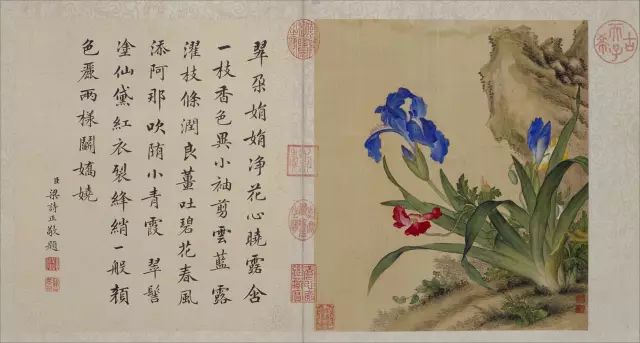 翠朶娟娟淨花心曉露含
一枝香色異小袖剪雲藍露
濯枝條潤良薑吐碧花春風
添阿那吹隨小青霞 翠髻
塗仙黛紅衣裂絳綃一般顏
色麗兩樣鬭嬌嬈
臣梁詩正敬題
古希天子